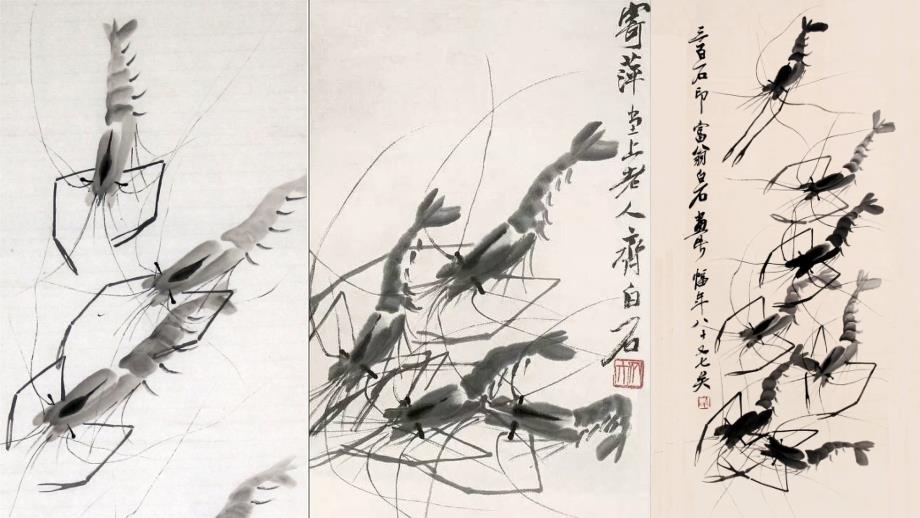 寄萍堂上老人齊白石
三百石印富翁白石畫時年八十又七矣